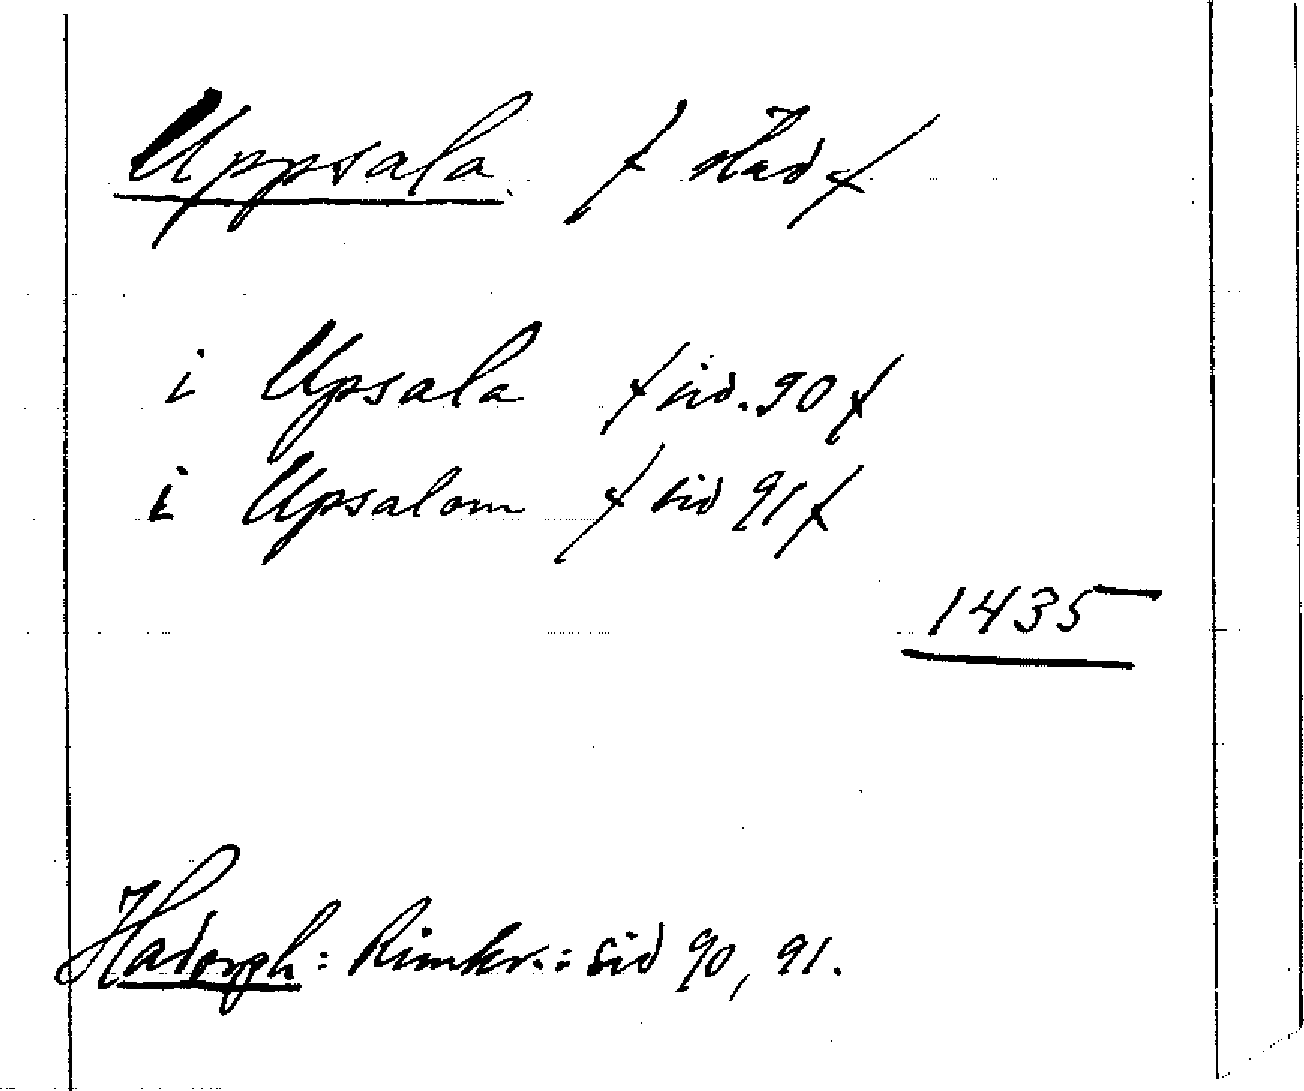 Uppsala f stad f
i Upsala f sid. 90 f
i Upsalom f sid 91 f
1435
Hadorph: Rimkr.: sid 90, 91.